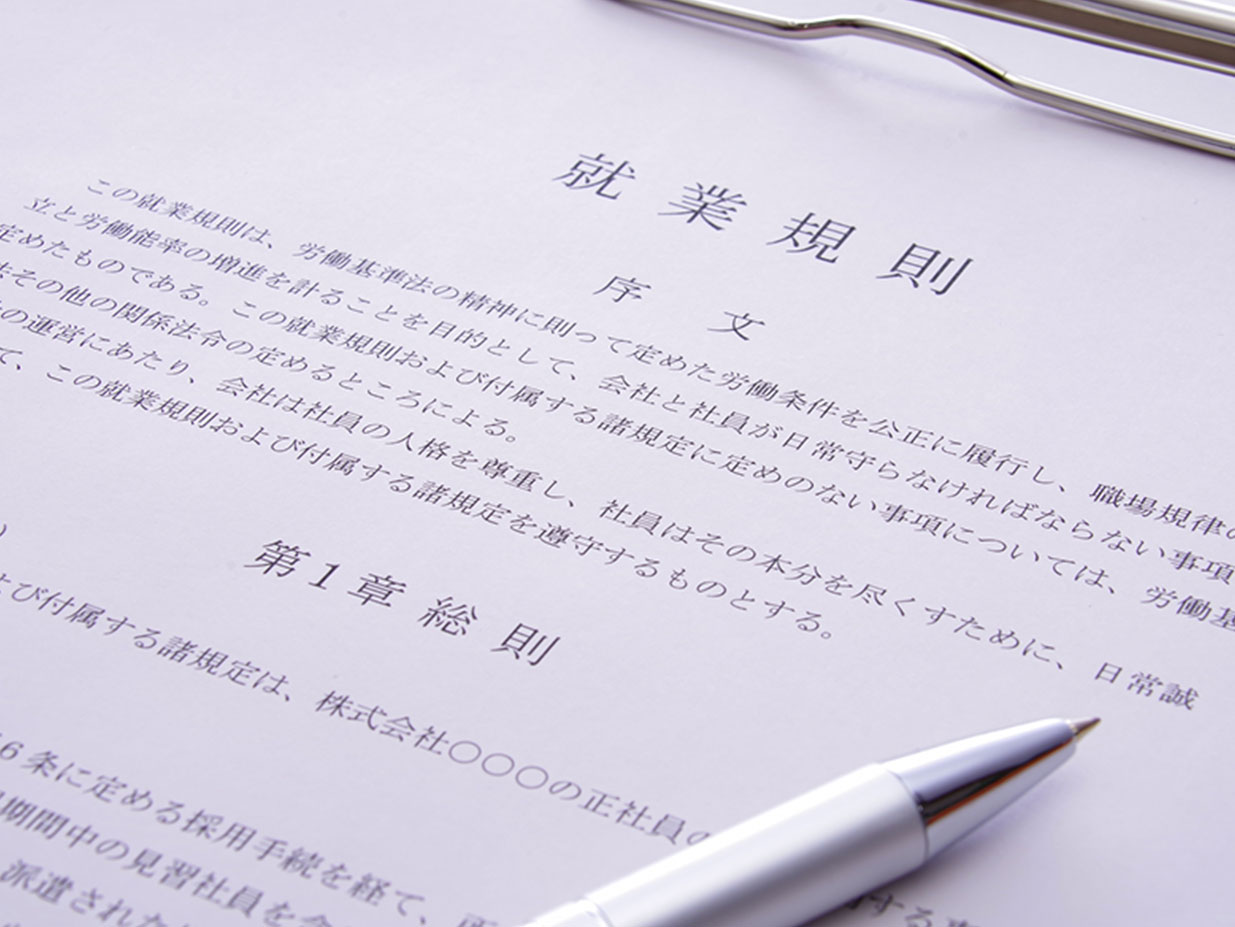 就業規則
序文
この就業規則は、労働基準法の精神に則って定めた労働条件を公正に履行し、職場規律の
立と労働能率の増進を計ることを目的として、会社と社員が日常守らなければならない事項
定めたものである。この就業規則および付属する諸規定に定めのない事項については、労働基
法その他の関係法令の定めるところによる。
の運営にあたり、会社は社員の人格を尊重し、社員はその本分を尽くすために、日常誠
て、この就業規則および付属する諸規定を遵守するものとする。
第1章 総則
よび付属する諸規定は、株式会社〇〇〇の正社員の
6条に定める採用手続を経て、
期間中の見習社員を
派遣された